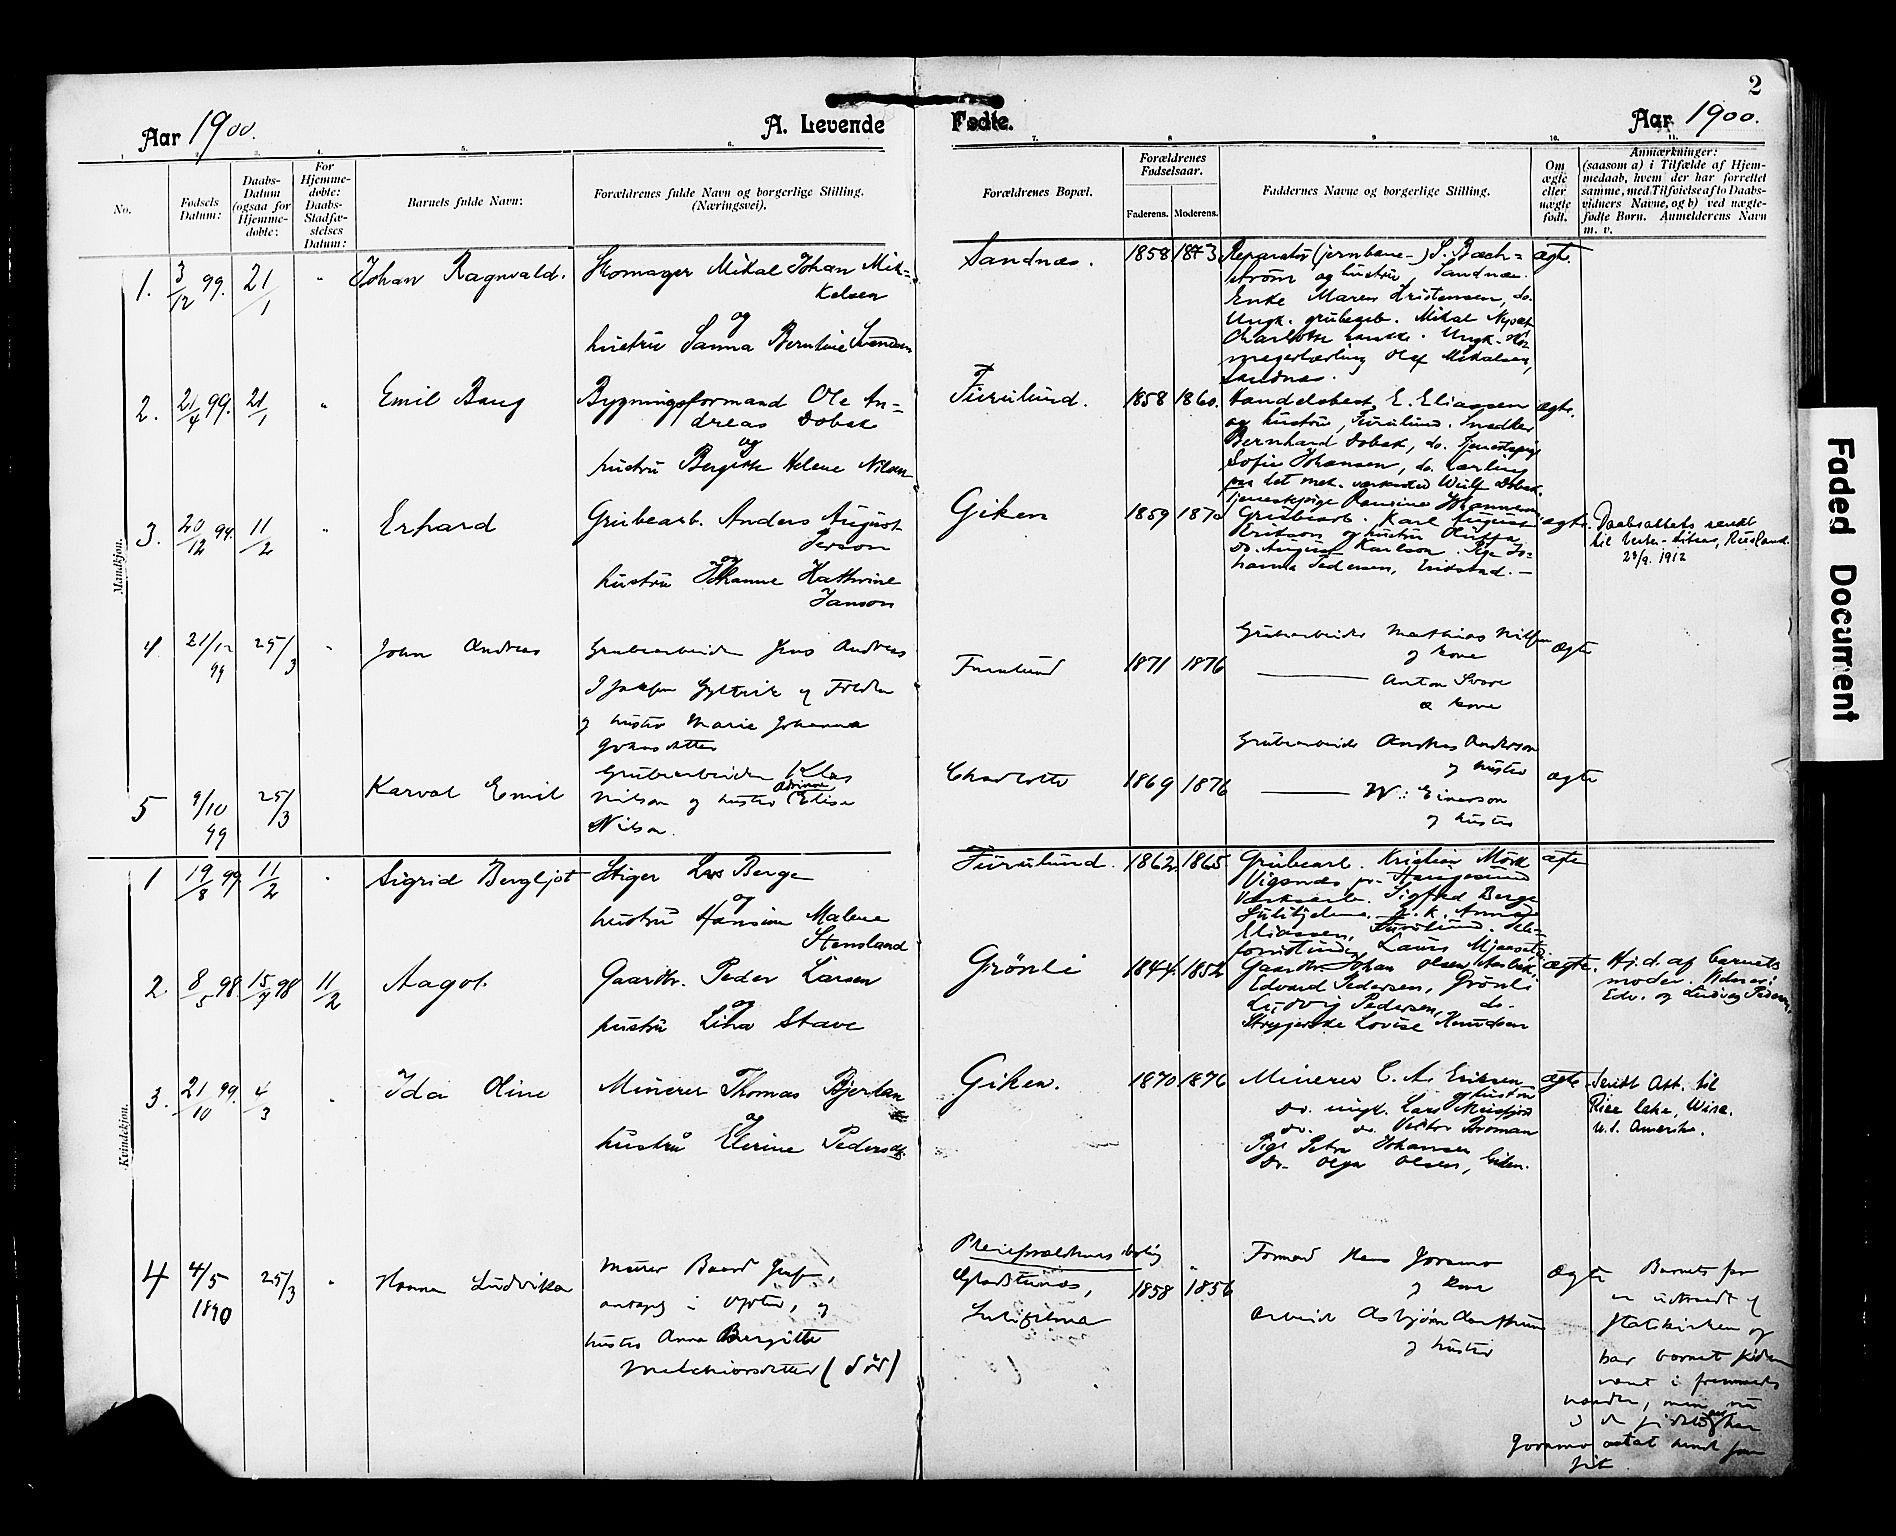 2
Aar 1900.
A. Levende Fødte.
Aar 1900.
1. 2. 3. 4. 5. 6. 7. 8. 9. 10. 11.
No.
Fødsels Datum:
Daabs-Datum (ogsaa for Hjemmedøbte:
For Hjemmedøbte: Daabs-Stadfæstelses Datum:
Barnets fulde Navn:
Forældrenes fulde Navn og borgerlige Stilling.
(Næringsvei).
Forældrenes Bopæl.
Forældrenes Fødselsaar.
Faderens. Moderens.
Faddernes Navne og borgerlige Stilling.
Om ægte eller uægte født.
Anmærkninger:
(saasom a) i Tilfælde af Hjem-
medaab, hvem der har forrettet
samme, med Tilføielse af to Daabs-
vidners Navne, og b) ved uægte-
fødte Børn. Anmelderens Navn
m. v.
Mandkjøn.
1. 3/12 99. 21/1 " Johan Ragnvald.
Skomager Mikal Johan Mik-
kelsen
og
hustru Sanna Berntine Svendsen
Sandnæs. 1858 1843
Reparatør (jernbane-) S. Bach-
strøm og hustru, Sandnæs.
Enke Maren Kristensen, do.
Ungk. grubearb. Mikal
Olaf Mikalsen,
Sandnæs.
ægte.
2. 21/4 99. 21/1 " Emil Baug
Bygningsformand Ole An-
dreas Dobak
og
hustru Bergitte Helene Nilsen
Furulund. 1858 1860.
Handelsbest. E. Eliassen
og hustru, Furulund. Snedker
Bernhard Dobak, do. Tjenestepige
Sofie Johansen, do. Lærling
paa det mek. værksted Wulf Dobak.
tjenestepige Johannesen
ægte.
3. 20/12 99. 11/2 " Erhard
Grubearb. Anders August
Person
og
hustru Johanne Kathrine
Janson
Giken 1859 1870
Grubearb. Karl August
Erikson og hustru
do. August Karlson. Pige Jo-
hanna Pedersen,
ægte.
Daabsattest sendt
til Rusland
28/9. 1912
4 21/12 99 25/3 " John Andreas
Grubearbeider Jens Andreas
og hustro Marie Johanna
Johnsdatter
Furulund 1871 1876
Grubearbeider Mathias Nilsen
og kone
Anton Svare
& kone
ægte
5 9/10 99 25/3 Karval Emil
Grubearbeider Klas
Nilson og hustro Elise
Nilson.
Charlotte 1869 1876
Grubearbeider Andreas Anderson
og hustro
W: Einerson
og hustro
ægte
Kvindekjøn.
1 19/8 99 11/2 " Sigrid Bergljot
Stiger Lars Berge
og
hustru Hansine Malene
Stensland
Furulund. 1862. 1865
Grubearb. Kristian Mörk
Vigsnæs pr. Haugesund
Værksarb. Sigfred Berge
Sulitjelma. Anna
Eliassen, Furulund.
ægte
2. 8/5 98 15/9 98 11/2 Aagot.
Gaardbr. Peder Larsen
og
hustru Lina Stave
Grönli 1844. 1852
Gaardbr. Johan Olsen
Edvard Pedersen, Grönli
Ludvig Pedersen, do.
Strygerske Lovise Knudsen
ægte.
Hj. d. af barnets
moder. Vidner:
Edv. og Ludvig Pedersen.
3. 21/10 99. 4/3 " Ida Oline
Minerer Thomas Bjerkan
og
hustru Elerine Pedersdt.
Giken. 1870 1876
Minerer C. A. Eriksen
og hustru
do. ungk. Lars Misfjord
do. do. Viktor Broman
Pige Petra Johansen
do. Olga Olsen, Giken.
ægte
Sendt Att. til
Rice Lake, Wisc.
U.S. Amerika.
4 4/5 1890 25/3 " Hanna Ludvika
Murer Baard
hustro Anna Bergitte
Melchiorsdatter (død)
Pleieforældrenes bolig
Sulitjelma
1858 1856
Formand Hans Joramo
og kone
Arbeider Asbjörn
og hustro
ægte
Barnets far
er udtraadt af
statskirken og
har barnet siden
været i fremmedes
Joramo
Faded Document